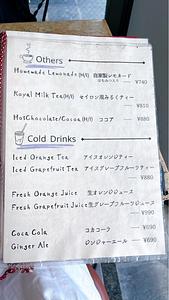 Others
Homemade Lemonade(H/I) 自家製レモネード
はちみつ入り ¥740
Royal Milk Tea(H/I) セイロン風みるくティー
¥810
HotChocolate/Cocoa(H/I) ココア ¥880
Cold Drinks
Iced Orange Tea アイスオレンジティー
Iced Grapefruit Tea アイスグレープフルーツティー
¥880
Fresh Orange Juice 生オレンジジュース
Fresh Grapefruit Juice 生グレープフルーツジュース
¥990
Coca Cola コカコーラ ¥690
Ginger Ale ジンジャーエール ¥690